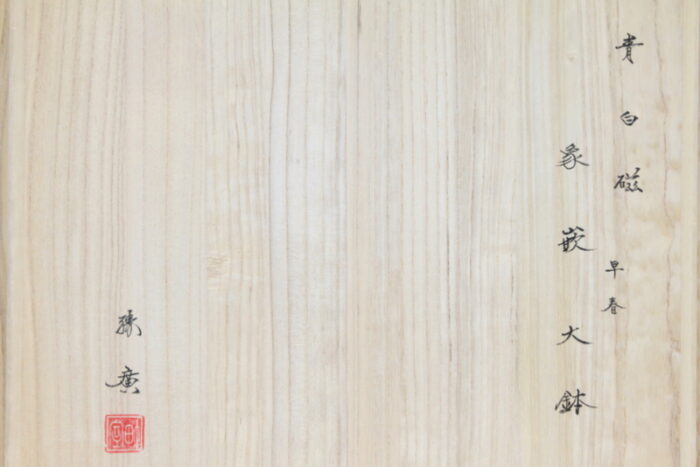 青白磁 早春
象嵌大鉢
廣